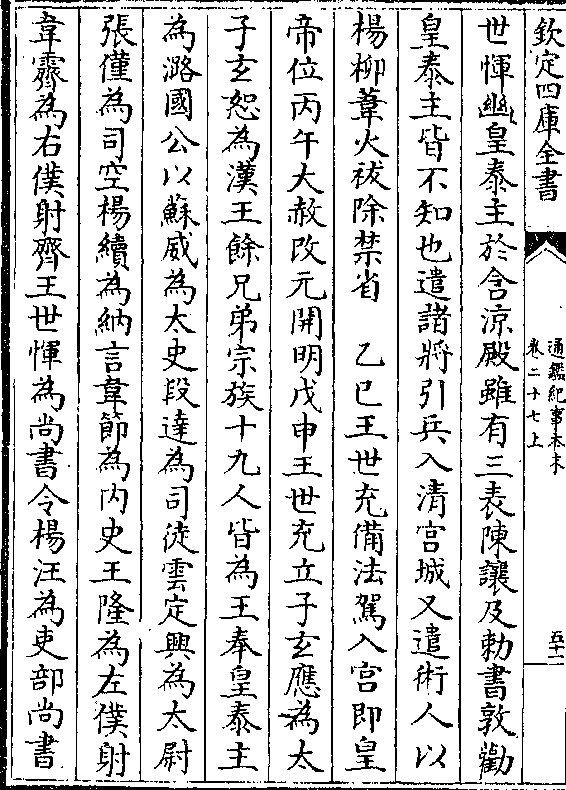 欽定四庫全書
通鑑紀事本末
卷二十七上
五十一
世惲幽皇泰主於含凉殿雖有三表陳讓及勅書敦勸
皇泰主皆不知也遣諸將引兵入清宫城又遣術人以
楊柳葦火祓除禁省　乙巳王世充備法駕入宫即皇
帝位丙午大赦改元開明戊申王世充立子玄應為太
子玄恕為漢王餘兄弟宗族十九人皆為王奉皇泰主
為潞國公以蘇威為太史段達為司徒雲定興為太尉
張僅為司空楊續為納言韋節為内史王隆為左僕射
韋霽為右僕射齊王世惲為尚書令楊汪為吏部尚書